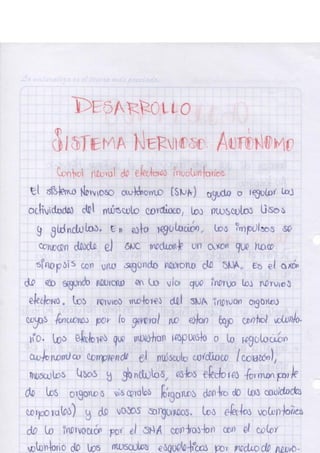 La naturaleza es el tesoro más preciado.
DESARROLLO
SISTEMA NERVIOSO AUTÓNOMO
Control neural de efectores involuntarios
El sistema Nervioso autónomo (SNA) ayuda a regular las
actividades del músculo cardiaco, los musculos lisos
y glándulas. En esta regulación, los impulsos se
conocen desde el SNC mediante un axon que hace
sinapsis con una segunda neurona de SNA. Es el axón
de esa segunda neurona en la vía que inerva los nervios
efectores. Los nervios motores del SNA inervan organos
cuyas funciones por lo general no estan bajo control volunta-
rio. Los efectores que muestran respuesta a la regulación
autonomica comprende el músculo cardiaco (corazón),
musculos lisos y glandulas, estos efectores forman parte
de los organos viscerales (órganos dentro de las cavidades
corporales) y de vasos sanguineos. Los efectos voluntarios
de la inervación por el SNA contrastan con el color
voluntario de los musculos esqueléticos por medio de neuro-